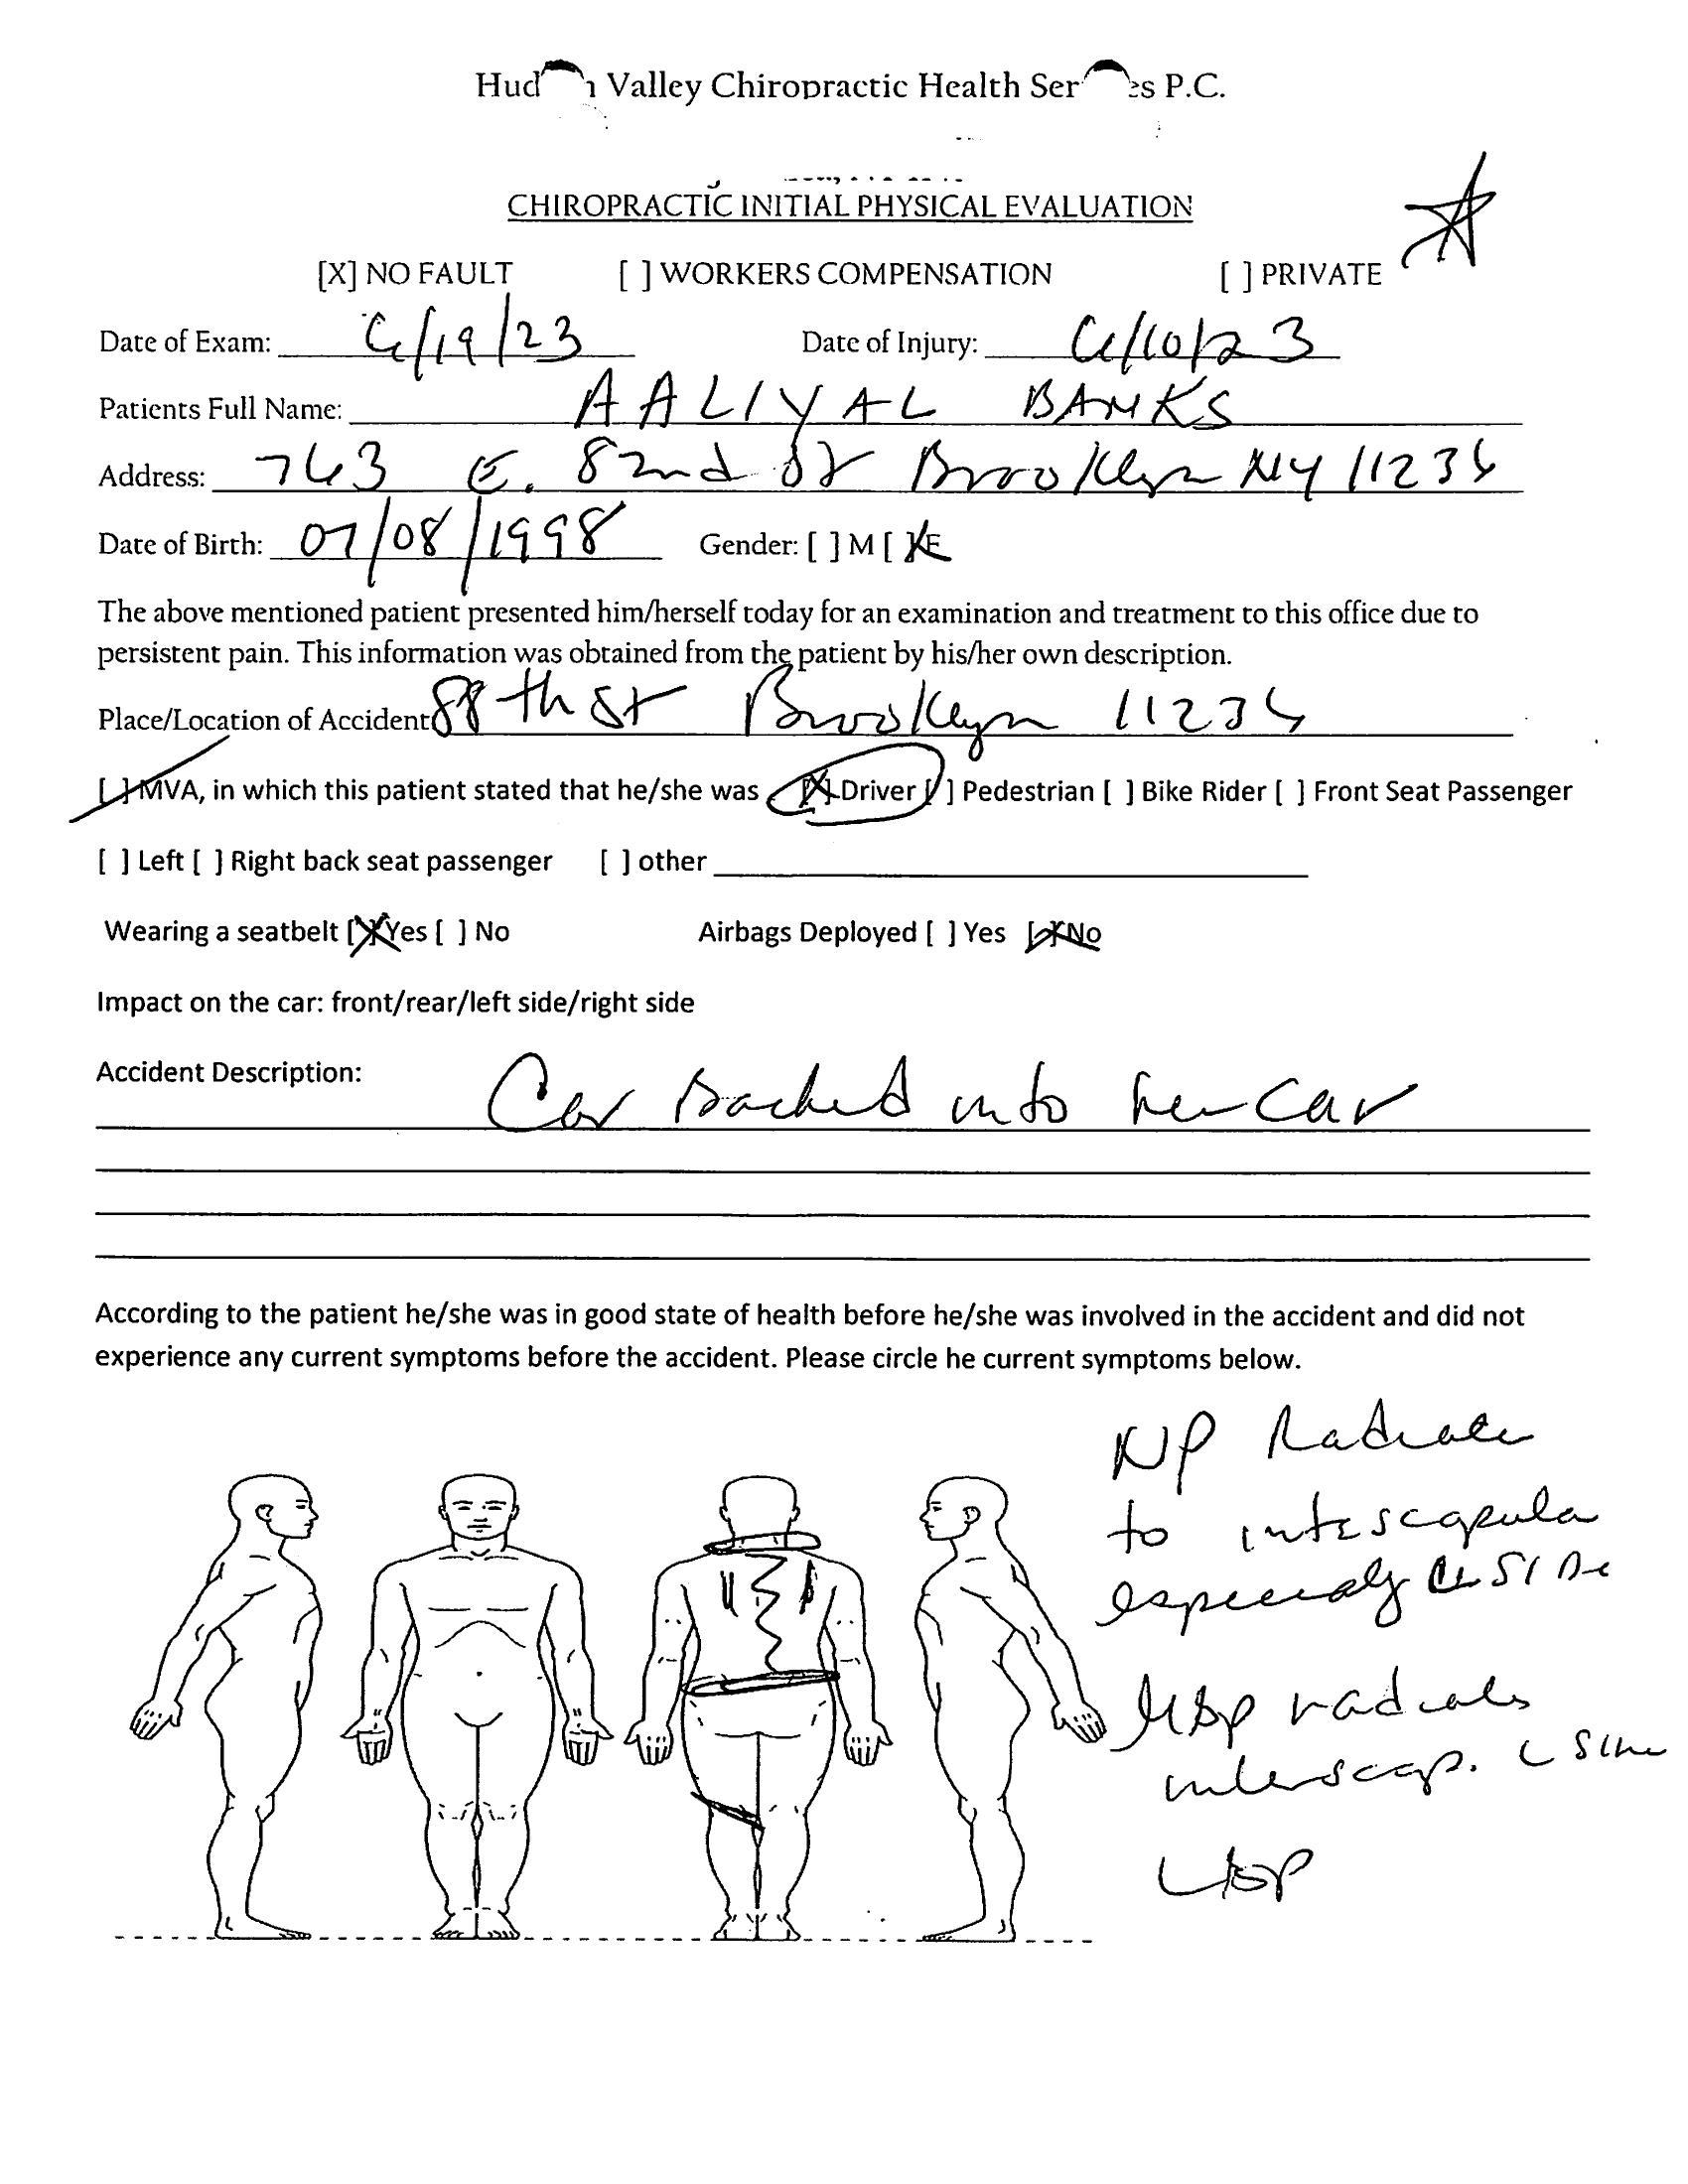 Hudson Valley Chiropractic Health Services P.C.
CHIROPRACTIC INITIAL PHYSICAL EVALUATION
[X] NO FAULT [ ] WORKERS COMPENSATION [ ] PRIVATE
Date of Exam: 6/19/23 Date of Injury: 6/10/23
Patients Full Name: AALIYAL BANKS
Address: 763 E. 82nd St Brooklyn NY 11236
Date of Birth: 07/08/1998 Gender: [ ] M [X] F
The above mentioned patient presented him/herself today for an examination and treatment to this office due to
persistent pain. This information was obtained from the patient by his/her own description.
Place/Location of Accident: 88th St Brooklyn 11236
[ ] MVA, in which this patient stated that he/she was [X] Driver [ ] Pedestrian [ ] Bike Rider [ ] Front Seat Passenger
[ ] Left [ ] Right back seat passenger [ ] other
Wearing a seatbelt [X] Yes [ ] No Airbags Deployed [ ] Yes [X] No
Impact on the car: front/rear/left side/right side
Accident Description: Car backed into her car
According to the patient he/she was in good state of health before he/she was involved in the accident and did not
experience any current symptoms before the accident. Please circle he current symptoms below.
NP Radiates
to interscapula
especially L SIDE
MBP radiates
interscap. L Side
LBP